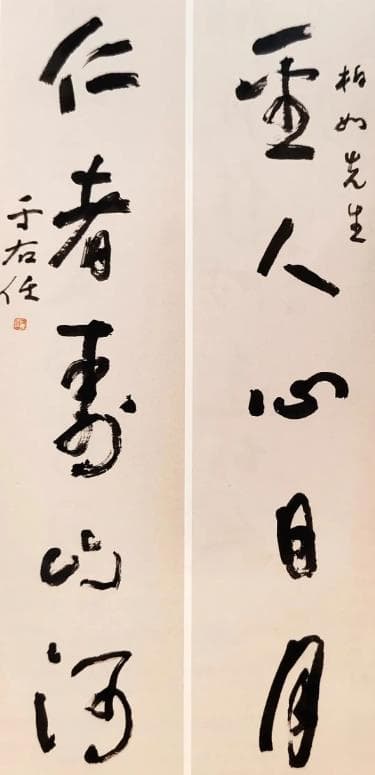 柏如先生
聖人心日月
仁者壽山河
于右任